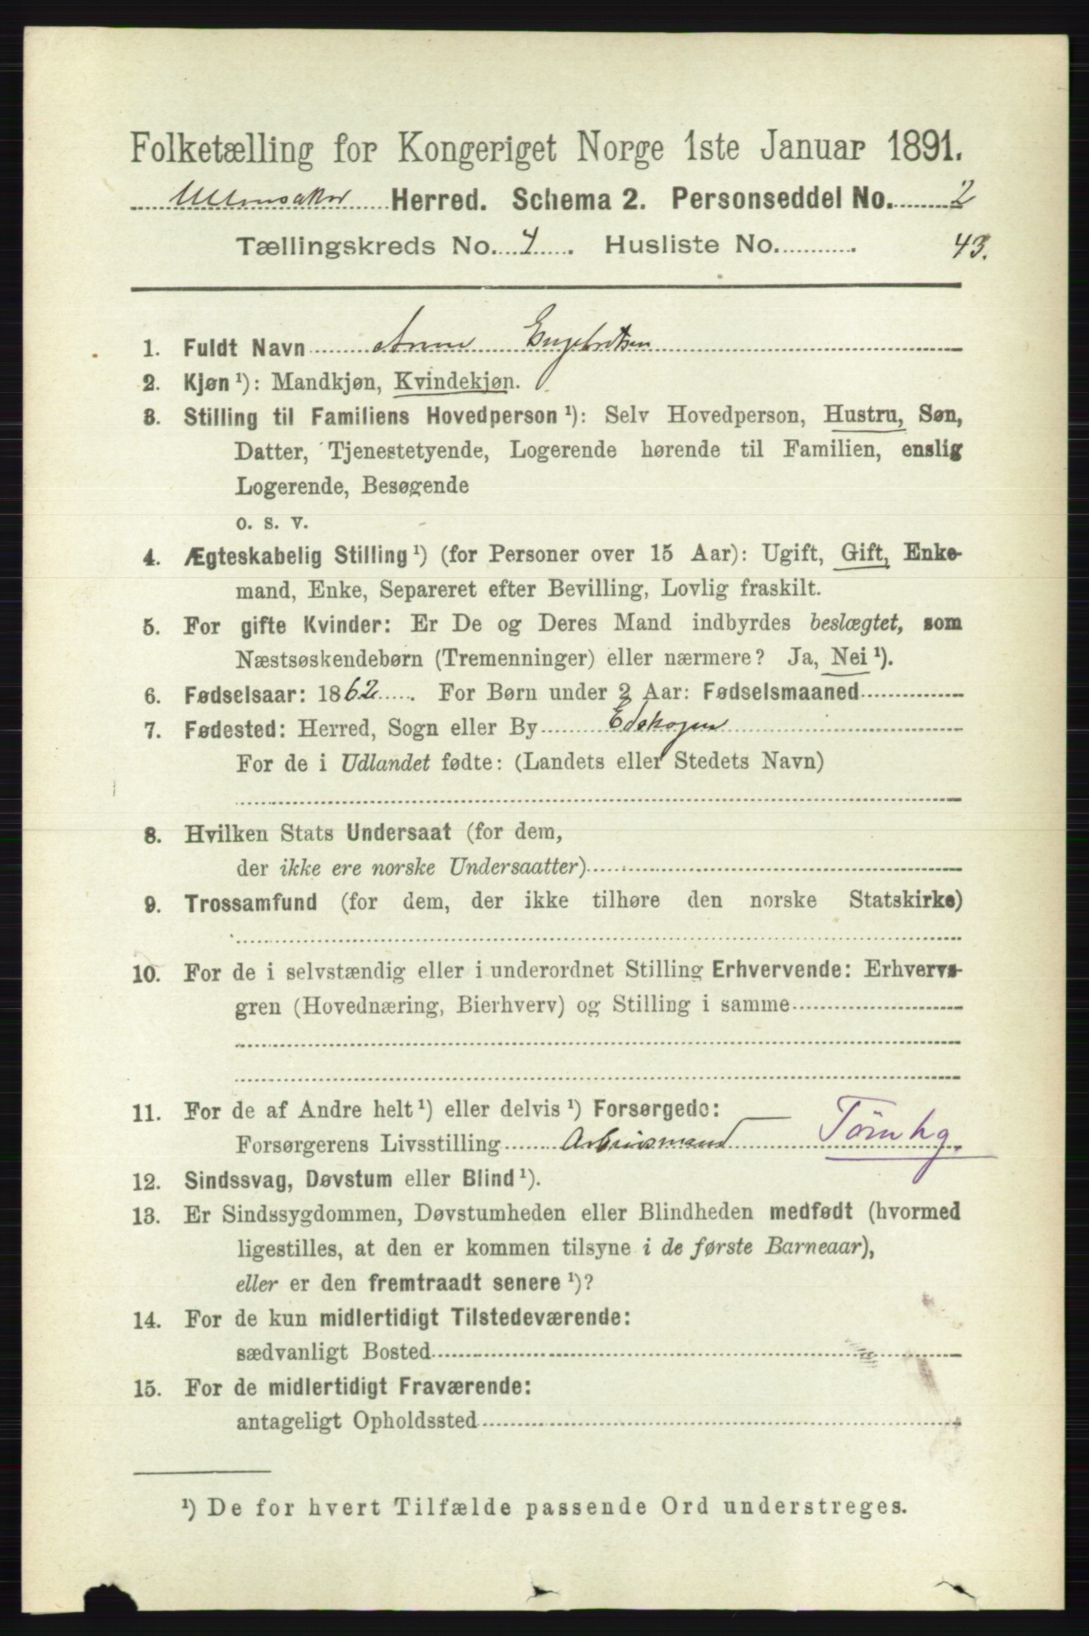 Folketælling for Kongeriget Norge 1ste Januar 1891.
Ullensaker Herred. Schema 2. Personseddel No. 2
Tællingskreds No. 4. Husliste No. 43.
1. Fuldt Navn Anne Engebretsen
2. Kjøn ¹): Mandkjøn, Kvindekjøn.
3. Stilling til Familiens Hovedperson ¹): Selv Hovedperson, Hustru, Søn,
Datter, Tjenestetyende, Logerende hørende til Familien, enslig
Logerende, Besøgende
o. s. v.
4. Ægteskabelig Stilling ¹) (for Personer over 15 Aar): Ugift, Gift, Enke-
mand, Enke, Separeret efter Bevilling, Lovlig fraskilt.
5. For gifte Kvinder: Er De og Deres Mand indbyrdes beslægtet, som
Næstsøskendebørn (Tremenninger) eller nærmere? Ja, Nei ¹).
6. Fødselsaar: 1862. For Børn under 2 Aar: Fødselsmaaned
7. Fødested: Herred, Sogn eller By Edskogen
For de i Udlandet fødte: (Landets eller Stedets Navn)
8. Hvilken Stats Undersaat (for dem,
der ikke ere norske Undersaatter)
9. Trossamfund (for dem, der ikke tilhøre den norske Statskirke)
10. For de i selvstændig eller i underordnet Stilling Erhvervende: Erhvervs-
gren (Hovednæring, Bierhverv) og Stilling i samme
11. For de af Andre helt ¹) eller delvis ¹) Forsørgede:
Forsørgerens Livsstilling Arbeidsmand Tømhg.
12. Sindssvag, Døvstum eller Blind ¹).
13. Er Sindssygdommen, Døvstumheden eller Blindheden medfødt (hvormed
ligestilles, at den er kommen tilsyne i de første Barneaar),
eller er den fremtraadt senere ¹)?
14. For de kun midlertidigt Tilstedeværende:
sædvanligt Bosted
15. For de midlertidigt Fraværende:
antageligt Opholdssted
¹) De for hvert Tilfælde passende Ord understreges.